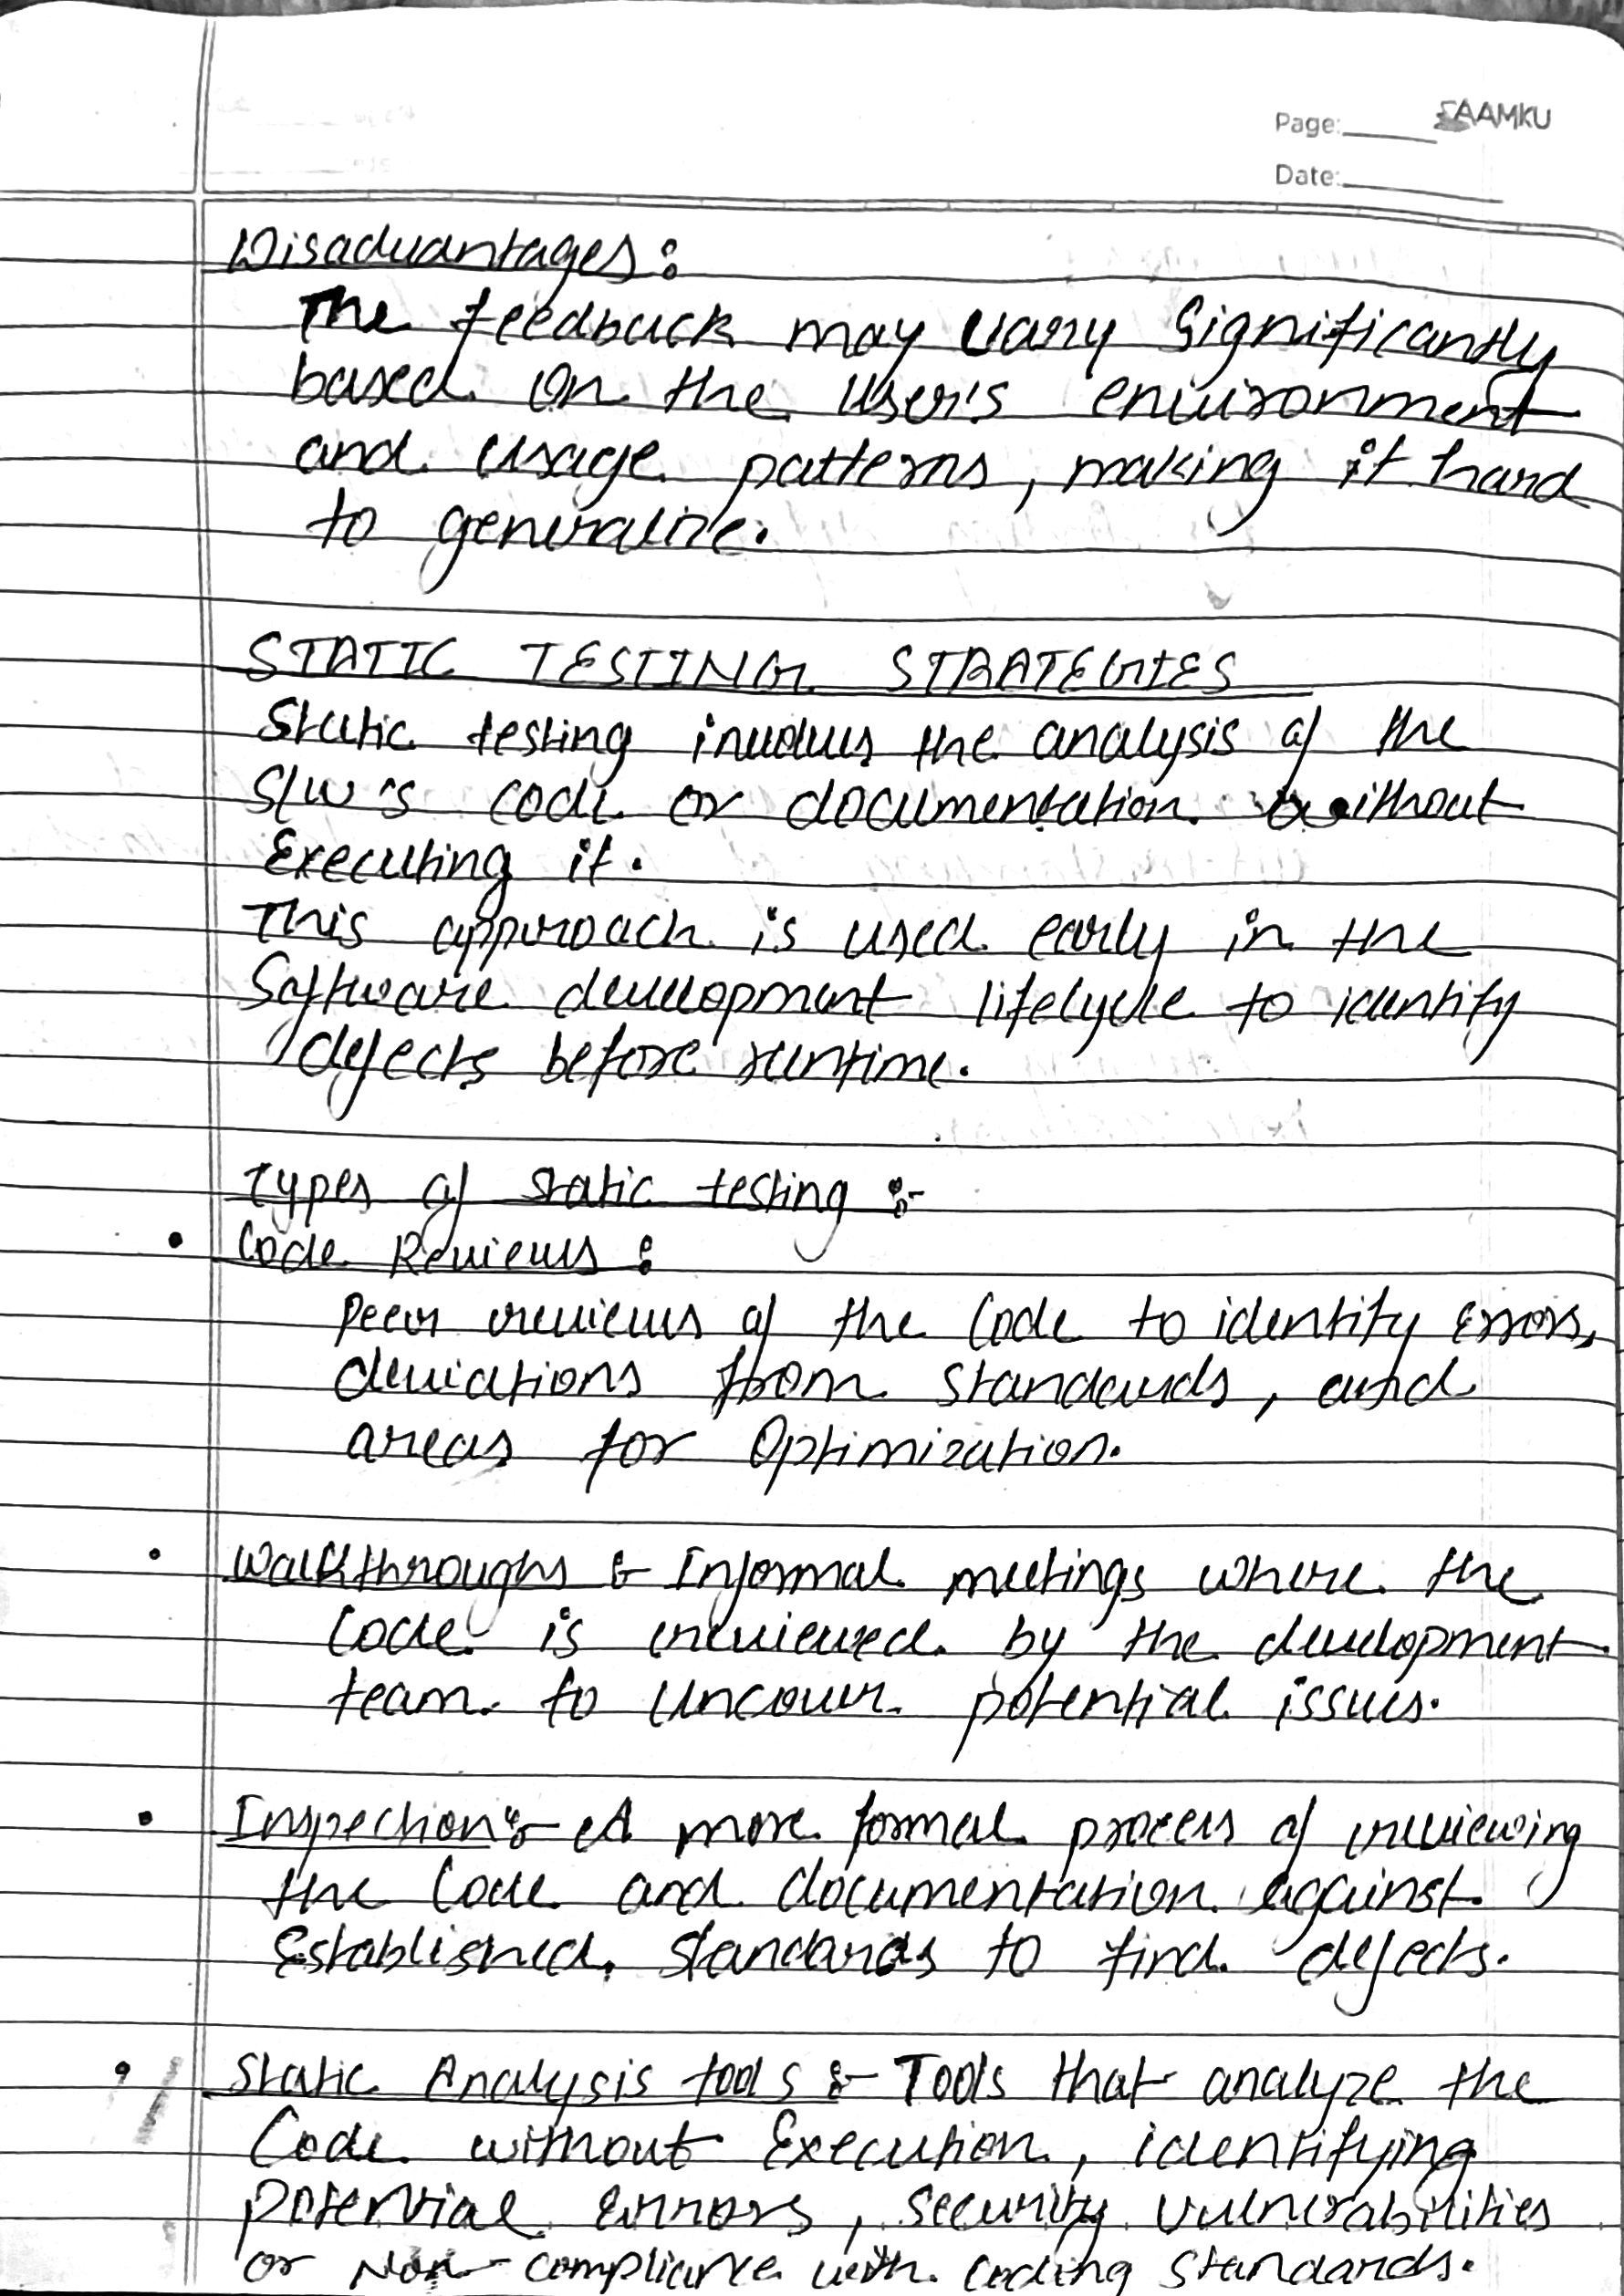 Page: SAAMKU
Date:
Disadvantages:
The feedback may vary significantly
based on the user's environment
and usage patterns, making it hard
to generalize.
STATIC TESTING STRATEGIES
Static testing involves the analysis of the
S/W's code or documentation without
Executing it.
This approach is used early in the
Software development lifelycle to identify
defects before runtime.
Types of static testing :-
• Code Reviews :
Peer reviews of the Code to identify Errors,
deviations from standards, and
areas for Optimization.
• Walkthroughs :- Informal meetings where the
Code is reviewed by the development
team to Uncover potential issues.
• Inspection :- A more formal process of reviewing
the Code and documentation against
Established standards to find defects.
• Static Analysis tools :- Tools that analyze the
Code without Execution, identifying
potential errors, security vulnerabilities
or Non-compliance with coding standards.